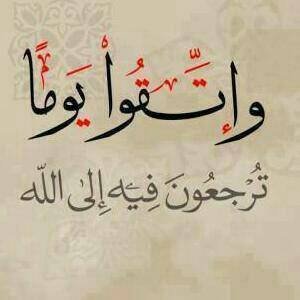 وإتَّقُوا يَومًا
تُرْجَعُونَ فِيهِ إِلىَ اللّه